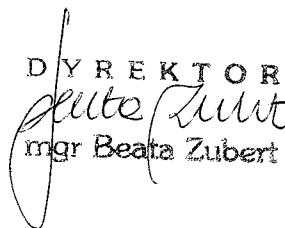 DYREKTOR
Beata Zubert
mgr Beata Zubert